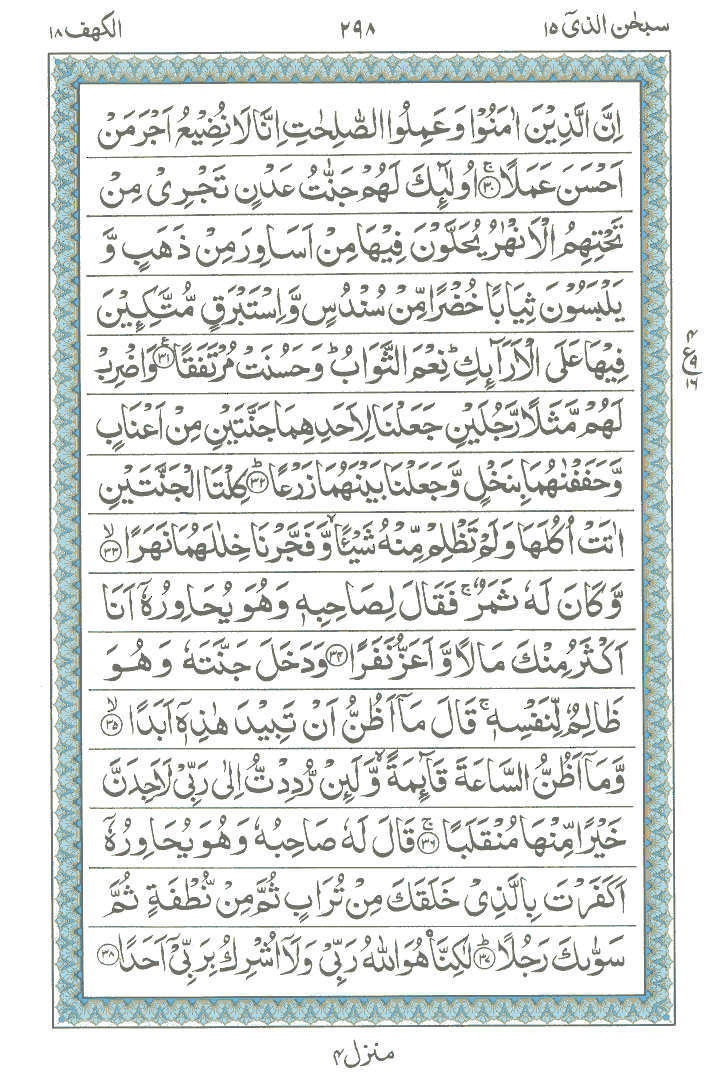 سبحٰن الذیٓ ۱۵ ۲۹۸ الكهف ۱۸
اِنَّ الَّذِيْنَ اٰمَنُوْا وَعَمِلُوا الصّٰلِحٰتِ اِنَّا لَا نُضِيْعُ اَجْرَ مَنْ
اَحْسَنَ عَمَلًا ۚ‏﴿۳۰﴾ اُولٰٓئِكَ لَهُمْ جَنّٰتُ عَدْنٍ تَجْرِىْ مِنْ
تَحْتِهِمُ الْاَنْهٰرُ يُحَلَّوْنَ فِيْهَا مِنْ اَسَاوِرَ مِنْ ذَهَبٍ وَّ
يَلْبَسُوْنَ ثِيَابًا خُضْرًا مِّنْ سُنْدُسٍ وَّاِسْتَبْرَقٍ مُّتَّكِـِٕيْنَ
فِيْهَا عَلَى الْاَرَآٮِٕكِ‌ؕ نِعْمَ الثَّوَابُ‌ؕ وَحَسُنَتْ مُرْتَفَقًا ‏﴿۳۱﴾ وَاضْرِبْ
ع ۴ ۹ ۱۶
لَهُمْ مَّثَلًا رَّجُلَيْنِ جَعَلْنَا لِاَحَدِهِمَا جَنَّتَيْنِ مِنْ اَعْنَابٍ
وَّحَفَفْنٰهُمَا بِنَخْلٍ وَّجَعَلْنَا بَيْنَهُمَا زَرْعًا ؕ‏﴿۳۲﴾ كِلْتَا الْجَنَّتَيْنِ
اٰتَتْ اُكُلَهَا وَلَمْ تَظْلِمْ مِّنْهُ شَيْـًٔا‌ ۙ وَّفَجَّرْنَا خِلٰلَهُمَا نَهَرًا ۙ‏﴿۳۳﴾
وَّكَانَ لَهٗ ثَمَرٌ‌ ۚ فَقَالَ لِصَاحِبِهٖ وَهُوَ يُحَاوِرُهٗۤ اَنَا
اَكْثَرُ مِنْكَ مَالًا وَّاَعَزُّ نَفَرًا ‏﴿۳۴﴾ وَدَخَلَ جَنَّتَهٗ وَهُوَ
ظَالِمٌ لِّنَفْسِهٖ‌ ۚ قَالَ مَاۤ اَظُنُّ اَنْ تَبِيْدَ هٰذِهٖۤ اَبَدًا ۙ‏﴿۳۵﴾
وَّمَاۤ اَظُنُّ السَّاعَةَ قَآٮِٕمَةً  ۙ وَّلَٮِٕنْ رُّدِدْتُّ اِلٰى رَبِّىْ لَاَجِدَنَّ
خَيْرًا مِّنْهَا مُنْقَلَبًا‌ ۚ‏﴿۳۶﴾ قَالَ لَهٗ صَاحِبُهٗ وَهُوَ يُحَاوِرُهٗۤ
اَكَفَرْتَ بِالَّذِىْ خَلَقَكَ مِنْ تُرَابٍ ثُمَّ مِنْ نُّطْفَةٍ ثُمَّ
سَوّٰٮكَ رَجُلًاؕ‏﴿۳۷﴾ لٰـكِنَّا۟ هُوَ اللّٰهُ رَبِّىْ وَلَاۤ اُشْرِكُ بِرَبِّىْۤ اَحَدًا‏﴿۳۸﴾
منزل ۴